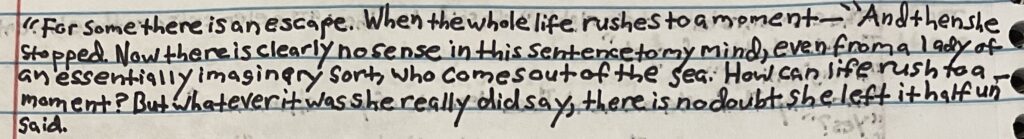 “For some there is an escape. When the whole life rushes to a moment—” And then she
stopped. Now there is clearly no sense in this sentence to my mind, even from a lady of
an essentially imaginary sort, who comes out of the sea. How can life rush to a
moment? But whatever it was she really did say, there is no doubt she left it half un
said.